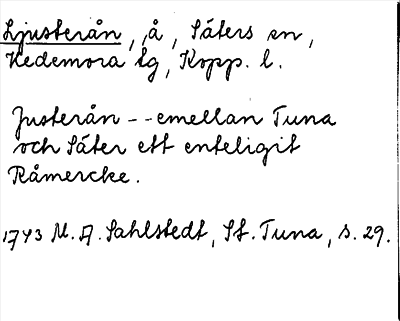 Ljusterån, å, Säters sn,
Hedemora tg, Kopp. l.
Justerån -- emellan Tuna
och Säter ett enteligit
Råmercke.
1743 M. A. Sahlstedt, St. Tuna, s. 29.